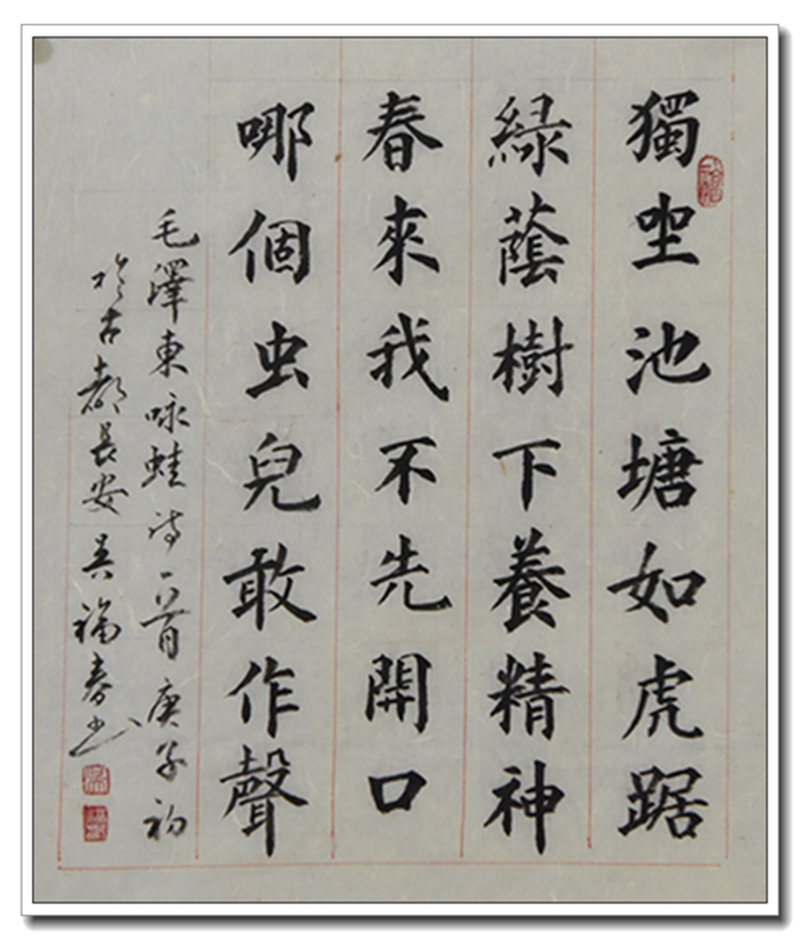 獨坐池塘如虎踞
綠蔭樹下養精神
春來我不先開口
哪個虫兒敢作聲
毛澤東咏蛙詩一首庚子初
於古都長安吳福春书